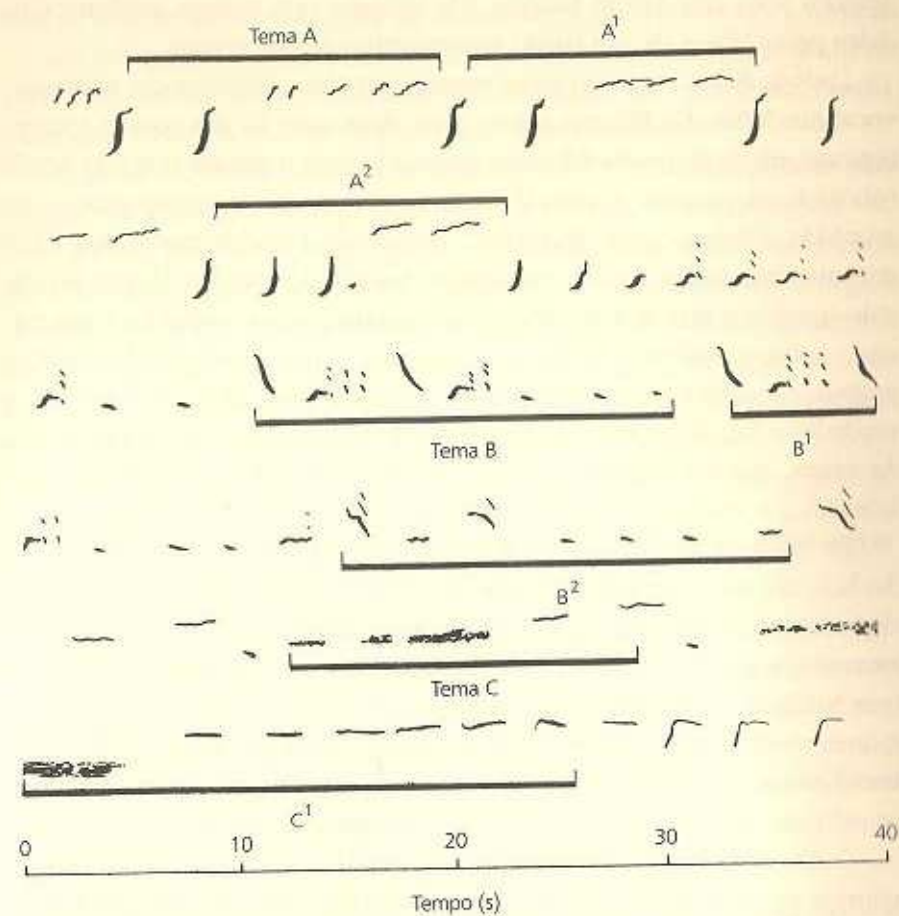 Tema A
A¹
A²
Tema B
B¹
B²
Tema C
C¹
0 10 20 30 40
Tempo (s)